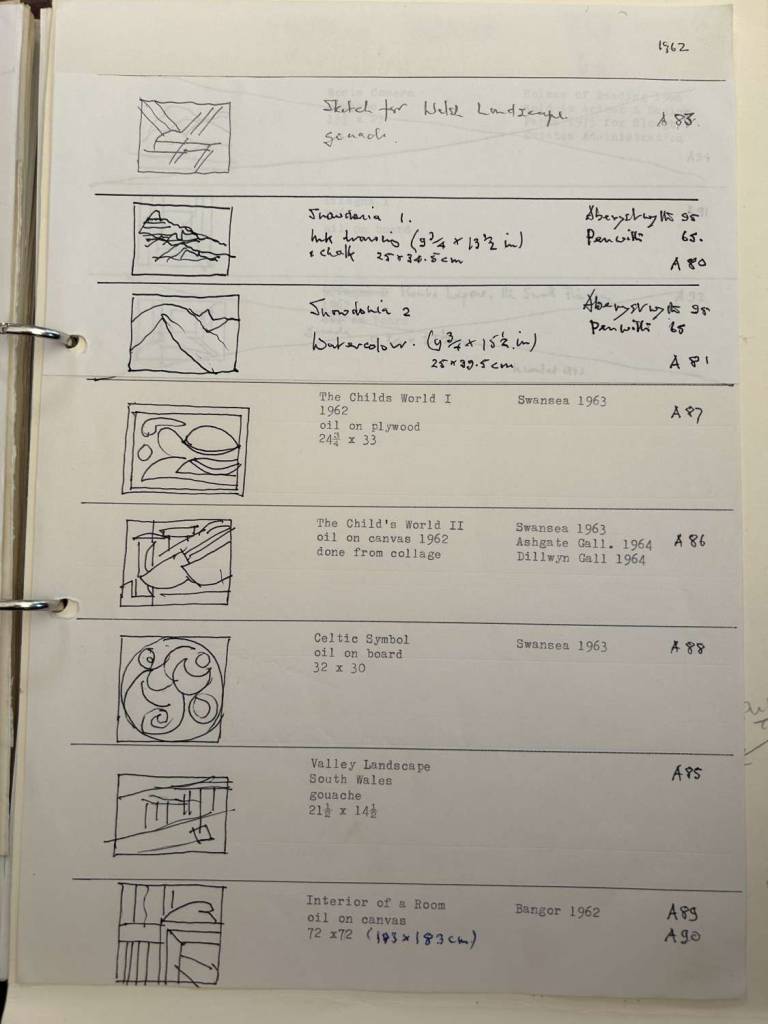 1962
Sketch for Welsh Landscape A 83.
gouach.
Snowdonia 1. Aberystwyth 95
Ink drawing (9 3/4 x 13 1/2 in) Penwith 65.
& chalk 25 x 34.5 cm A 80
Snowdonia 2 Aberystwyth 95
Penwith 65
Watercolour. (9 3/4 x 15 1/2 in)
25 x 39.5 cm A 81
The Childs World I Swansea 1963 A 87
1962
oil on plywood
24¾ x 33
The Child's World II Swansea 1963
oil on canvas 1962 Ashgate Gall. 1964 A 86
done from collage Dillwyn Gall 1964
Celtic Symbol Swansea 1963 A 88
oil on board
32 x 30
Valley Landscape A85
South Wales
gouache
21½ x 14½
Interior of a Room Bangor 1962 A89
oil on canvas A90
72 x72 (183 x 183 cm)